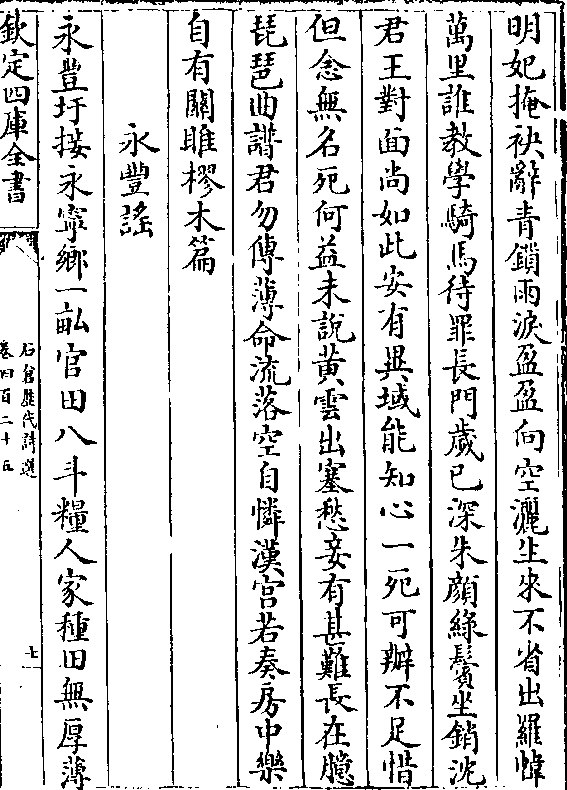 明妃掩袂辭青鎖雨淚盈盈向空灑生來不省出羅幃
萬里誰教學騎馬待罪長門歲已深朱顔綠鬢坐銷沈
君王對面尚如此安有異域能知心一死可辦不足惜
但念無名死何益未說黃雲出塞愁妾有甚難長在臆
琵琶曲譜君勿傳薄命流落空自憐漢宮若奏房中樂
自有關雎樛木篇
永豐謠
永豐圩接永寧鄉一畝官田八斗糧人家種田無厚薄
欽定四庫全書
石倉歷代詩選
卷四百二十五
七